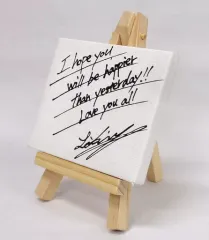 I hope you
will be happier
than yesterday!!
Love you all